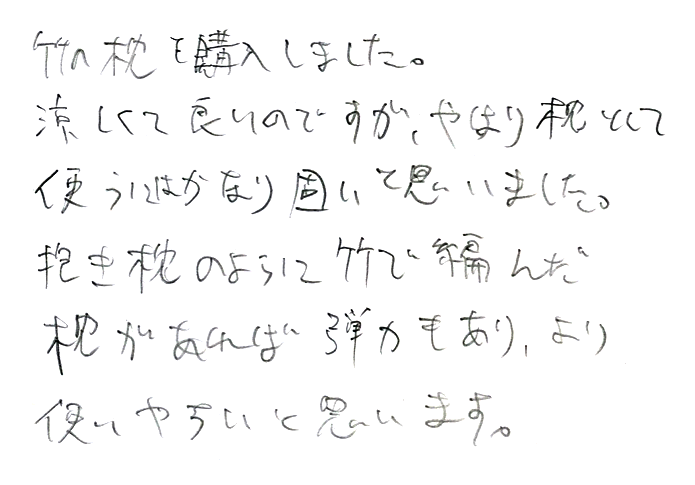 竹の枕を購入しました。
涼しくて良いのですが、やはり枕として
使うにはかなり固いと思いました。
抱き枕のように竹で編んだ
枕があれば弾力もあり、より
使いやすいと思います。